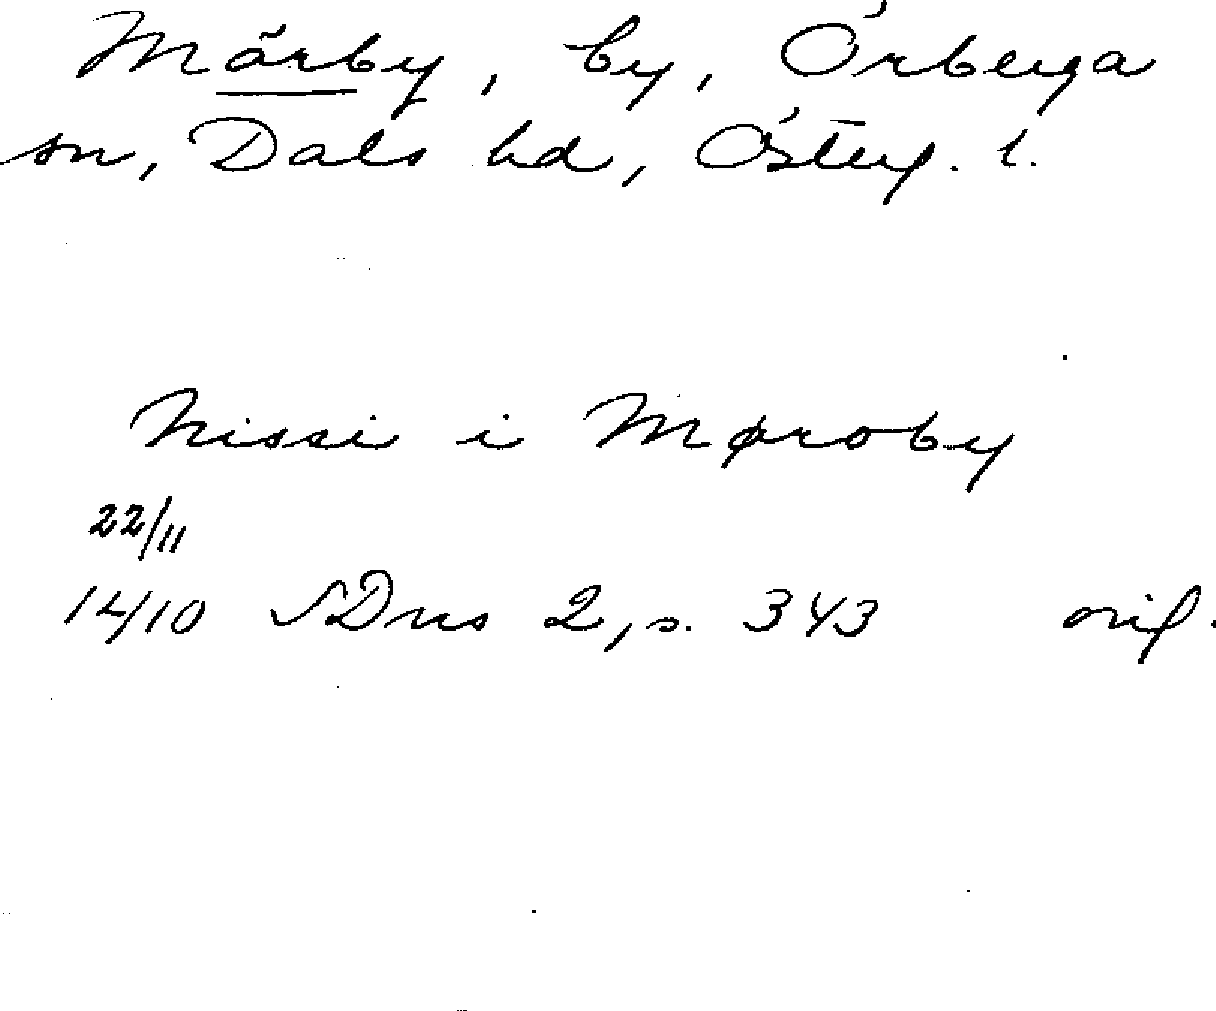 Mårby, by, Örberga
sn, Dals hd, Österg. l.
Nissi i Møroby
22/11
1410 SDns 2, s. 343 orig.